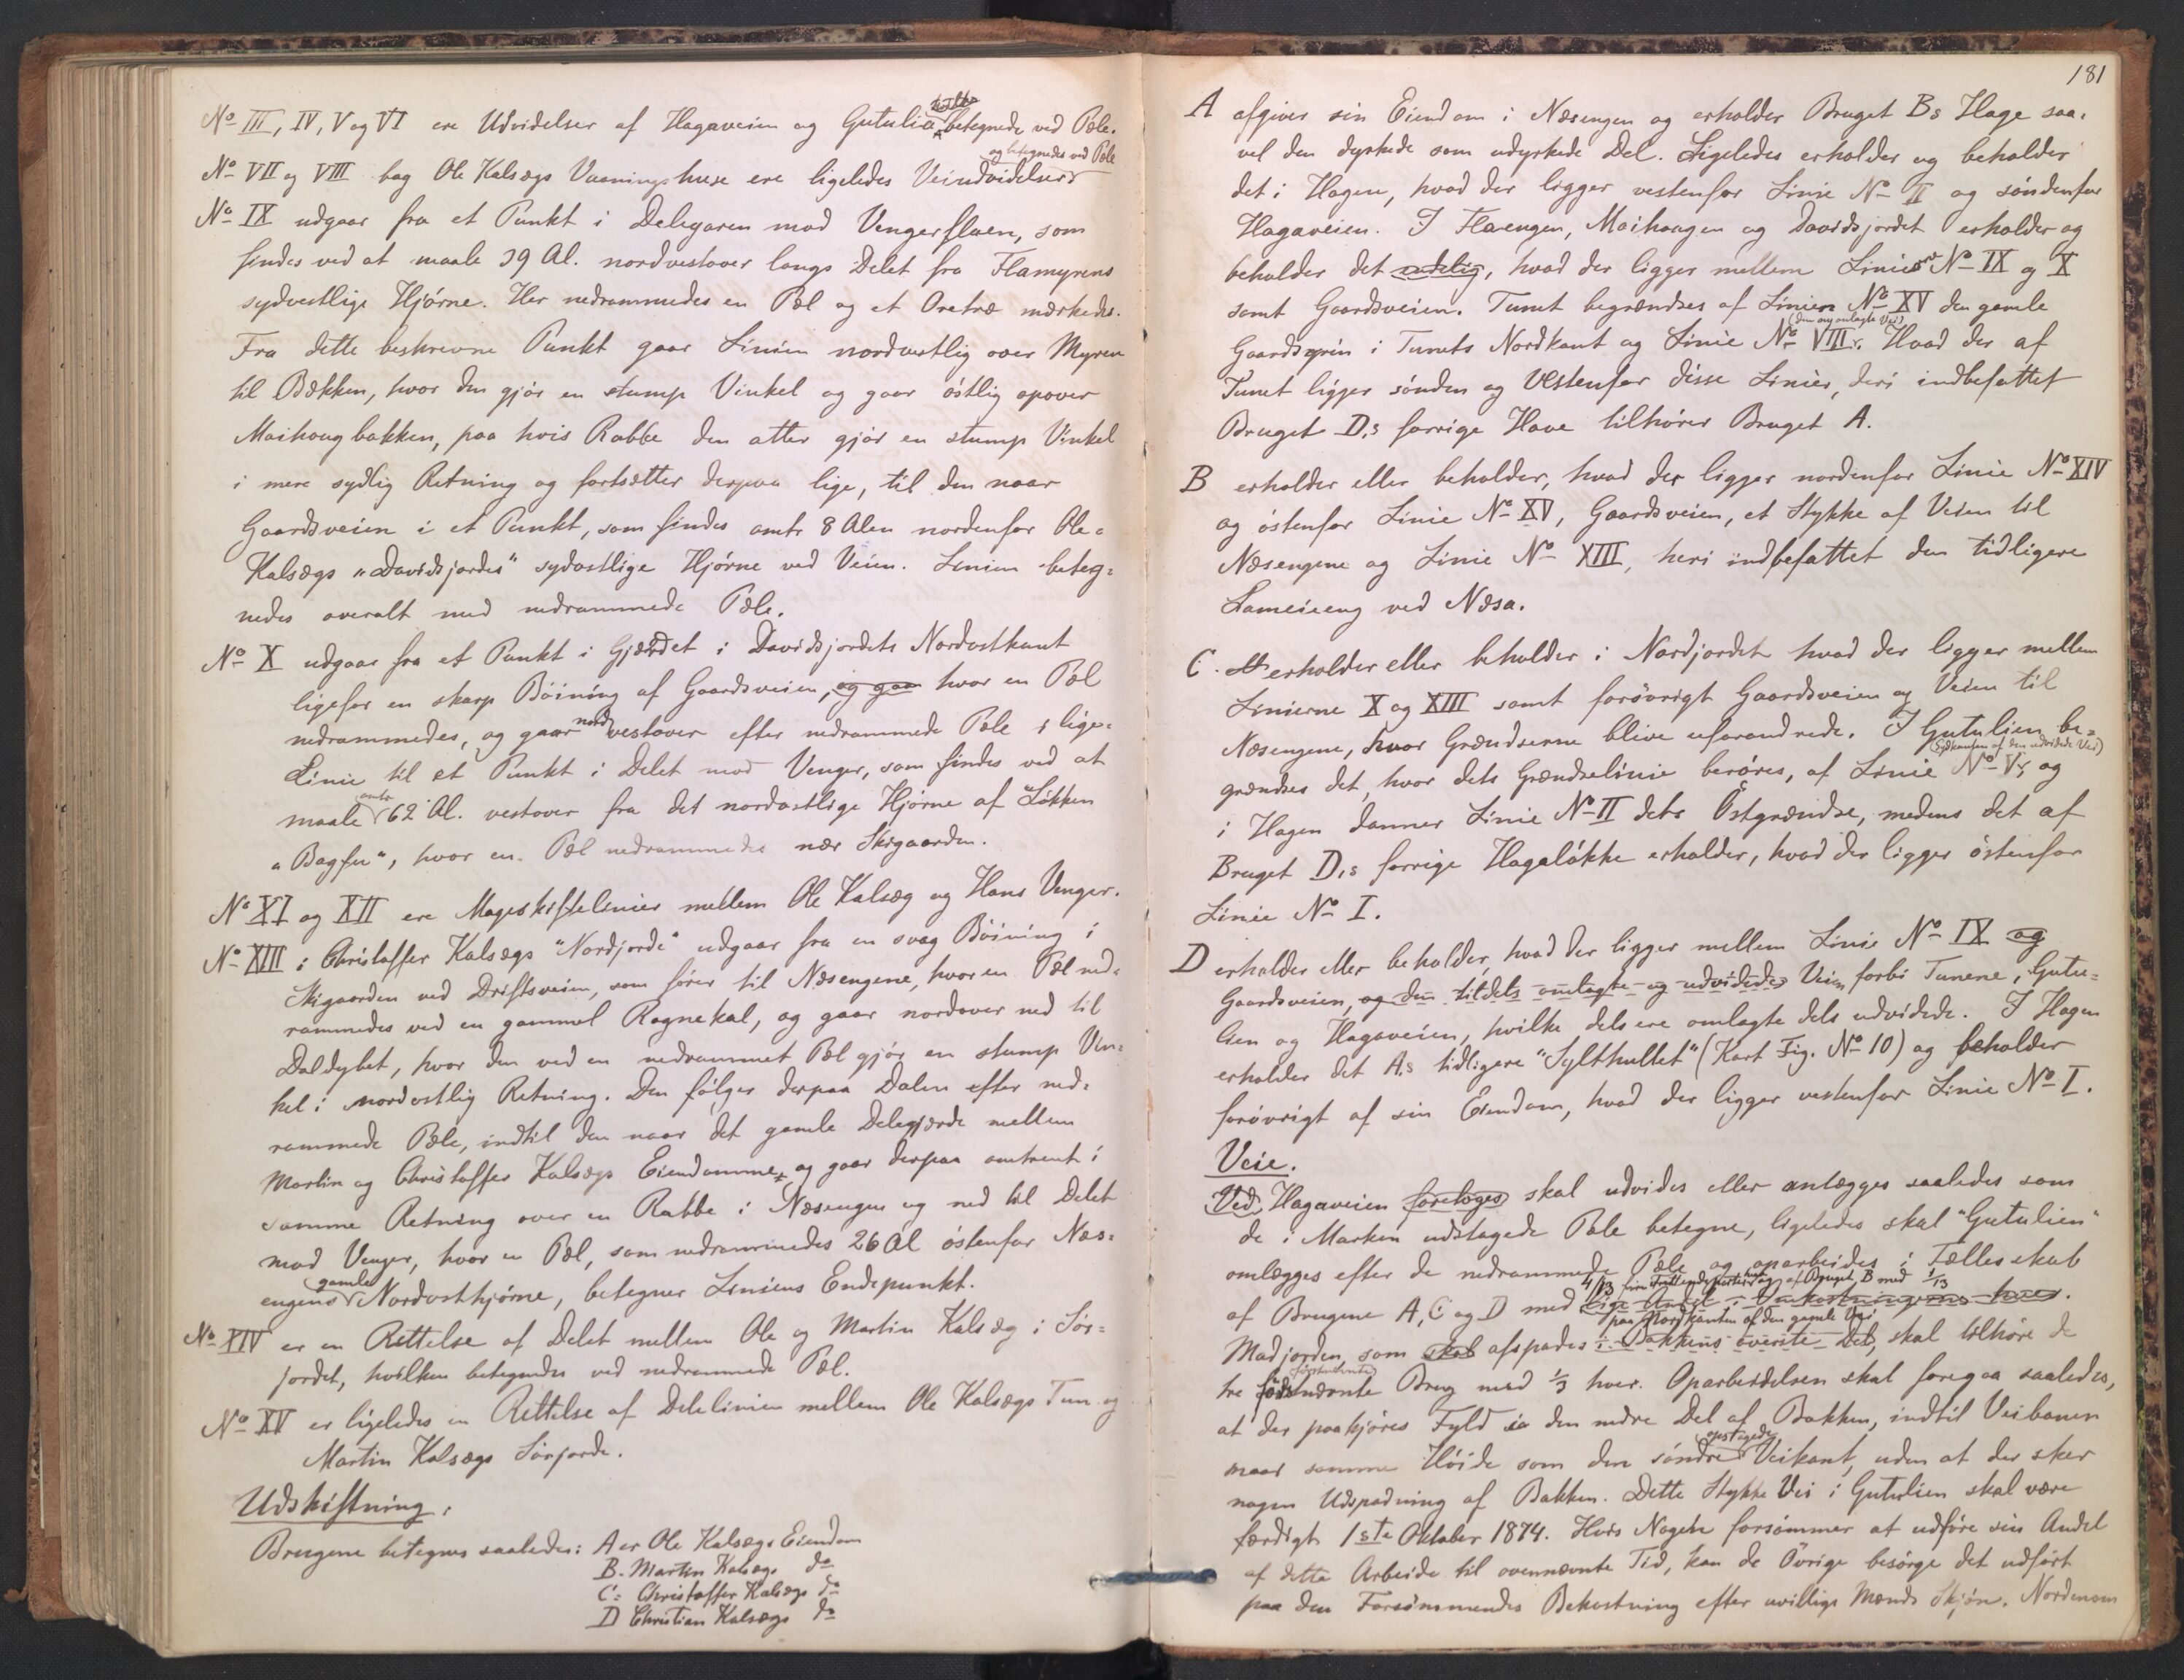 No III, IV, V og VI ere Udvidelser af Hagaveien og Gutulia betegnede ved Pæle.
og betegnedes ved Pæle
No VII og VIII bag Ole Kalsægs Vaaningshuse ere ligeledes Veiudvidelser
No IX udgaar fra et Punkt i Delegaren mod Vengerfluen, som
findes ved at maale 39 Al. nordvestover langs Delet fra Flamyrens
sydvestlige Hjörne. Her nedrammedes en Pæl og et Oretræ mærkedes.
Fra dette beskrevne Punkt gaar Linien nordostlig over Myren
til Bækken, hvor den gjör en stump Vinkel og gaar östlig opover
Maihaugbakken, paa hvis Rabbe den atter gjör en stump Vinkel
i mere sydlig Retning og fortsætter derpaa lige, til den naar
Gaardsveien i et Punkt, som findes omtr 8 Alen nordenfor Ole
Kalsægs "Davidsjordes" sydostlige Hjörne ved Veien. Linien beteg=
nedes overalt med nedrammede Pæle.
No X udgaar fra et Punkt i Gjærdet i Davidsjordets Nordostkant
ligefor en skarp Böining af Gaardsveien, og gaar hvor en Pæl
nedrammedes, og gaar nordvestover efter nedrammede Pæle i lige
Linie til et Punkt i Delet mod Venger, som findes ved at
maale omtr 62 Al. vestover fra det nordostlige Hjörne af Lökken
"Bagfu", hvor en Pæl nedrammedes nær Skigaarden.
No XI og XII ere Mageskiftelinier mellem Ole Kalsæg og Hans Venger.
No XIII i Christoffer Kalsægs "Nordjorde" udgaar fra en svag Böining i
Skigaarden ved Driftsveien, som förer til Næsengene, hvor en Pæl ned=
rammedes ved en gammel Rognekal, og gaar nordover ned til
Daldybet, hvor den ved en nedrammet Pæl gjör en stump Vin=
kel i nordostlig Retning. Den fölger derpaa Dalen efter ned=
rammede Pæle, indtil den naar det gamle Delegjærde mellem
Martin og Christoffer Kalsægs Eiendomme, og gaar derpaa omtrent i
samme Retning over en Rabbe i Næsengen og ned til Delet
mod Venger, hvor en Pæl, som nedrammedes 26 Al östenfor Næs=
engens gamle Nordvesthjörne, betegner Liniens Endepunkt.
No XIV er en Rettelse af Delet mellem Ole og Martin Kalsæg i Sör=
jordet, hvilken betegnedes ved nedrammede Pæl.
No XV er ligeledes en Rettelse af Delelinien mellem Ole Kalsægs Tun og
Martin Kalsægs Sörjorde.
Udskiftning.
Brugene betegnes saaledes: A er Ole Kalsægs Eiendom
B. Martin Kalsægs do
C: Christoffer Kalsægs do
D Christian Kalsægs do
181
A afgiver sin Eiendom i Næsengen og erholder Bruget Bs Hage saa=
vel den dyrkede som udyrkede Del. Ligeledes erholder og beholder
det i Hagen, hvad der ligger vestenfor Linie No II og söndenfor
Hagaveien. I Flaengen, Maihaugen og Davidsjordet erholder og
beholder det endelig, hvad der ligger mellem Linierne No IX og X
samt Gaardsveien. Tunet begrændses af Linien No XV den gamle
(den nu omlagte Vei)
Gaardsvein i Tunets Nordkant og Linie No VIII. Hvad der af
Tunet ligger sönden og Vestenfor disse Linier, deri indbefattet
Bruget D,s forrige Have tilhörer Bruget A.
B erholder eller beholder, hvad der ligger nordenfor Linie No XIV
og östenfor Linie No XV, Gaardsveien, et Stykke af Veien til
Næsengene og Linie No XIII, heri indbefattet den tidligere
Sameieeng ved Næsa.
C. erholder eller beholder i Nordjordet hvad der ligger mellem
Linierne X og XIII samt forövrigt Gaardsveien og Veien til
Næsengene, hvor Grændserne blive uforandrede. I Gutulien be=
(Sydkanten af den udvidede Vei)
grændses det, hvor dets Grændselinie beröres, af Linie No V, og
i Hagen danner Linie No II dets Östgrændse, medens det af
Bruget D,s forrige Hagalökke erholder, hvad der ligger östenfor
Linie No I.
D erholder eller beholder, hvad der ligger mellem Linie No IX og
Gaardsveien, og den tildels omlagte og udvidede Veien forbi Tunene, Gutu=
lien og Hagaveien, hvilke dels ere omlagte dels udvidede. I Hagen
erholder det A,s tidligere "Sylthullet" (Kart Fig. No 10) og beholder
forövrigt af sin Eiendom, hvad der ligger vestenfor Linie No I.
Veie.
Ved Hagaveien foretages skal udvides eller anlægges saaledes som
de i Marken udstagede Pæle betegne, ligeledes skal "Gutulien"
omlægges efter de nedrammede Pæle og oparbeides i Fællesskab
4/13 fire Trettendeparter hver og af Bruget B med 1/13
af Brugene A, C og D med lige Andel i Omkostningerne hver.
paa Nordkanten af den gamle Vei
Madjorden som skal afspades i Bakkens överste Del, skal tilhöre de
förstnævnte
tre nævnte Brug med 1/3 hver. Oparbeidelsen skal foregaa saaledes,
at der paakjöres Fyld i den nedre Del af Bakken, indtil Veibanen
opstagede
naar samme Höide som den söndre Veikant, uden at der sker
nogen Udspadning af Bakken. Dette Stykke Vei i Gutulien skal være
færdigt 1ste Oktober 1874. Hvis Nogen forsömmer at udföre sin Andel
af dette Arbeide til ovennævnte Tid, kan de Övrige besörge det udfört
paa den Forsömmendes Bekostning efter uvillige Mænds Skjön. Nordenom